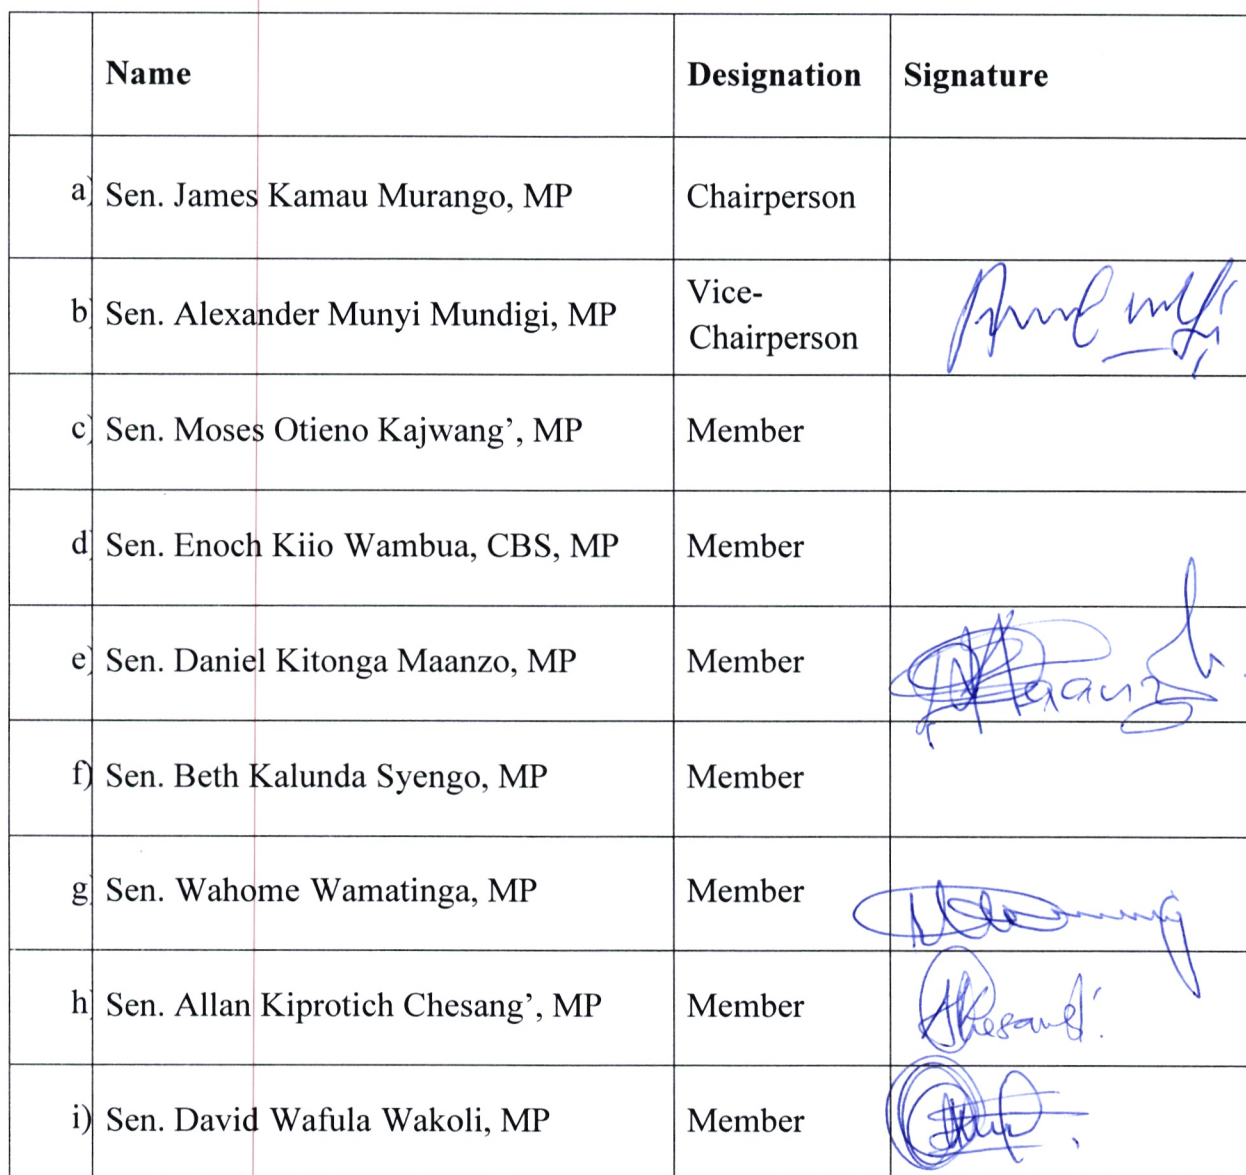 Name Designation Signature
a) Sen. James Kamau Murango, MP Chairperson
b) Sen. Alexander Munyi Mundigi, MP Vice-
Chairperson
c) Sen. Moses Otieno Kajwang’, MP Member
d) Sen. Enoch Kiio Wambua, CBS, MP Member
e) Sen. Daniel Kitonga Maanzo, MP Member
f) Sen. Beth Kalunda Syengo, MP Member
g) Sen. Wahome Wamatinga, MP Member
h) Sen. Allan Kiprotich Chesang’, MP Member
i) Sen. David Wafula Wakoli, MP Member